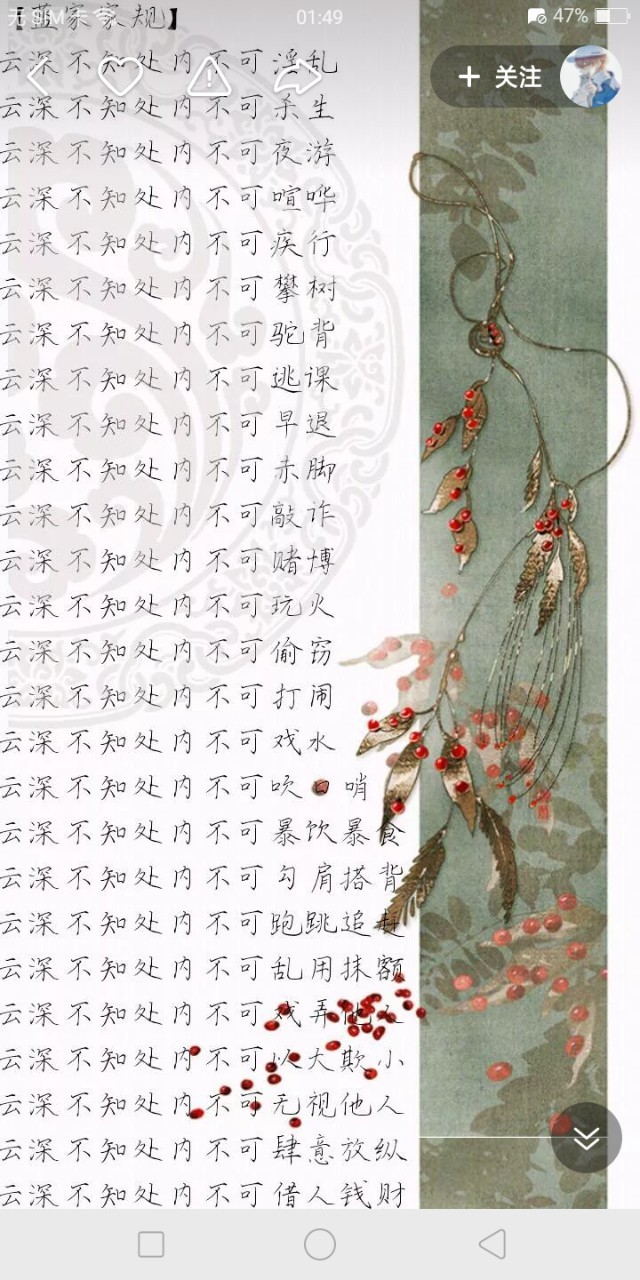 无SIM卡 01:49 47%
【蓝家家规】
+ 关注
云深不知处内不可淫乱
云深不知处内不可杀生
云深不知处内不可夜游
云深不知处内不可喧哗
云深不知处内不可疾行
云深不知处内不可攀树
云深不知处内不可驼背
云深不知处内不可逃课
云深不知处内不可早退
云深不知处内不可赤脚
云深不知处内不可敲诈
云深不知处内不可赌博
云深不知处内不可玩火
云深不知处内不可偷窃
云深不知处内不可打闹
云深不知处内不可戏水
云深不知处内不可吹口哨
云深不知处内不可暴饮暴食
云深不知处内不可勾肩搭背
云深不知处内不可跑跳追赶
云深不知处内不可乱用抹额
云深不知处内不可戏弄他人
云深不知处内不可以大欺小
云深不知处内不可无视他人
云深不知处内不可肆意放纵
云深不知处内不可借人钱财